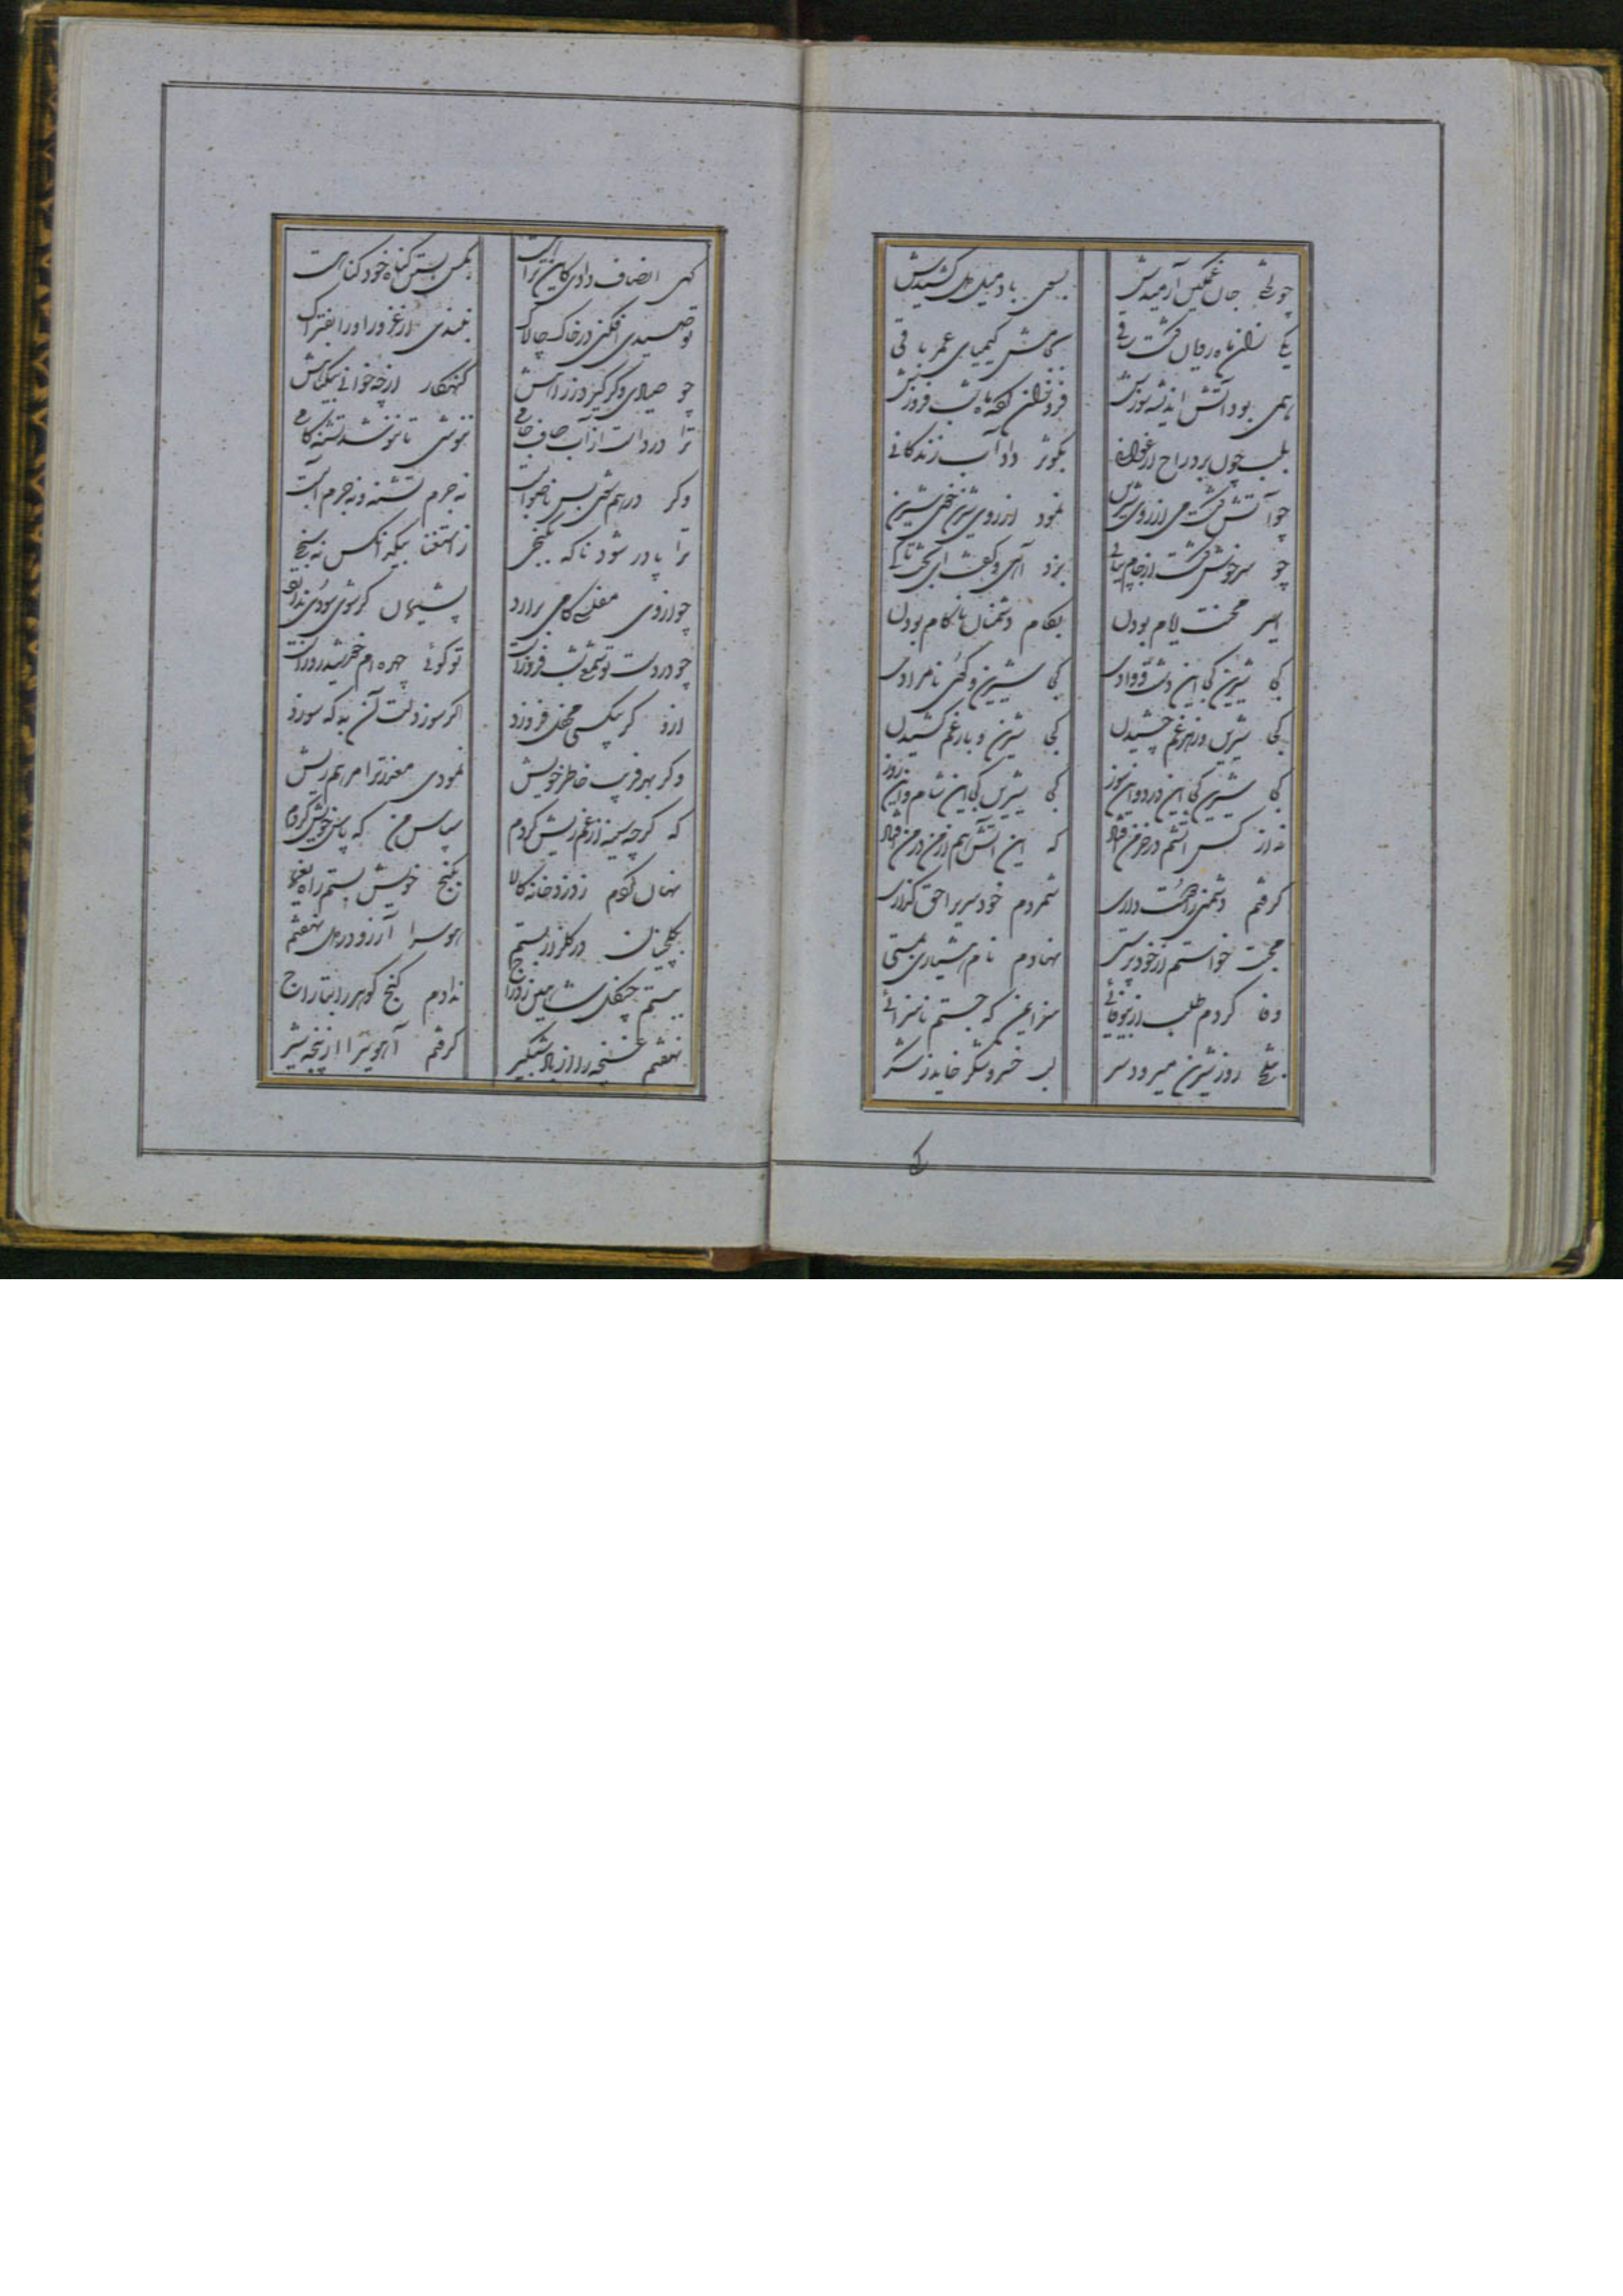 چو لختی جان غمگین آرمیدش بسی باده میل دل کشیدش
یکی زان ماه رویان گشت ساقی بکامش کیمیای عمر باقی
همی بود آتش اندیشه سوزش فروزان کفه ماه شب فروزش
بلب چون برد راح ارغوانی بکوثر داد آب زندگانی
چو آتش گشت می از روی شیرین نمود از روی شیرین خوی شیرین
چو سرخوش گشت از جام پیاپی بزد آهی و گفت ای بخت تا کی
اسیر محنت ایام بودن بکام دشمنان ناکام بودن
کجا شیرین کجا این دشت و وادی کجا شیرین و کوی نامرادی
کجا شیرین و زهر غم چشیدن کجا شیرین و بار غم کشیدن
کجا شیرین کجا این درد و این سوز کجا شیرین کجا این شام و این روز
نه از کس آتشم در خرمن فتاد که این آتش هم از من در من فتاد
گرفتم دشمنی را دوست داری شمردم خودسری را حق گزاری
محبت خواستم از خود پرستی نهادم نام هشیاری بمستی
وفا کردم طلب از بیوفائی سزای من که جستم ناسزائی
بتلخی روز شیرین میرود سر لب خسرو شکر خاید ز شکر
گهی انصاف دادی کاین نه راهست بکس بستن گناه خود گناهست
تو صیدی افکنی در خاک چالاک نبندی از غرور او را بفتراک
چو صیادی دگر گیرد ز راهش گنهکار از چه خوانی بیگناهش
ترا در دست از آب صاف جامی ننوشی تا بنوشد تشنه کامی
وگر درهم شوی بس ناصوابست نه جرم تشنه و نه جرم آبست
ترا پا در شود ناگه بگنجی ز استغنا بیکه انکس نه سنجی
چو از وی مفلسی کامی برارد پشیمان گر شوی سودی ندارد
چو در دست تو شمع شب فروزست تو گوئی چهره ام خورشید روزست
ازو گر بیکسی محفل فروزد اگر سوزد دلت آن به که سوزد
وگر بهر فریب خاطر خویش نمودی معذرت را مرهم ریش
که گرچه سینه از غم ریش کردم سپاس من که پاس خویش کردم
نهان کردم ز دزد خانه کالا بگنج خویش بستم راه یغما
بگلچینان در گلزار بستم هوس را آرزو در دل نهفتم
ببستم چنگل شاهین ز دراج ندادم گنج گوهر را بتاراج
نهفتم غنچه را از باد شبگیر گرفتم آهویی را از پنجه شیر